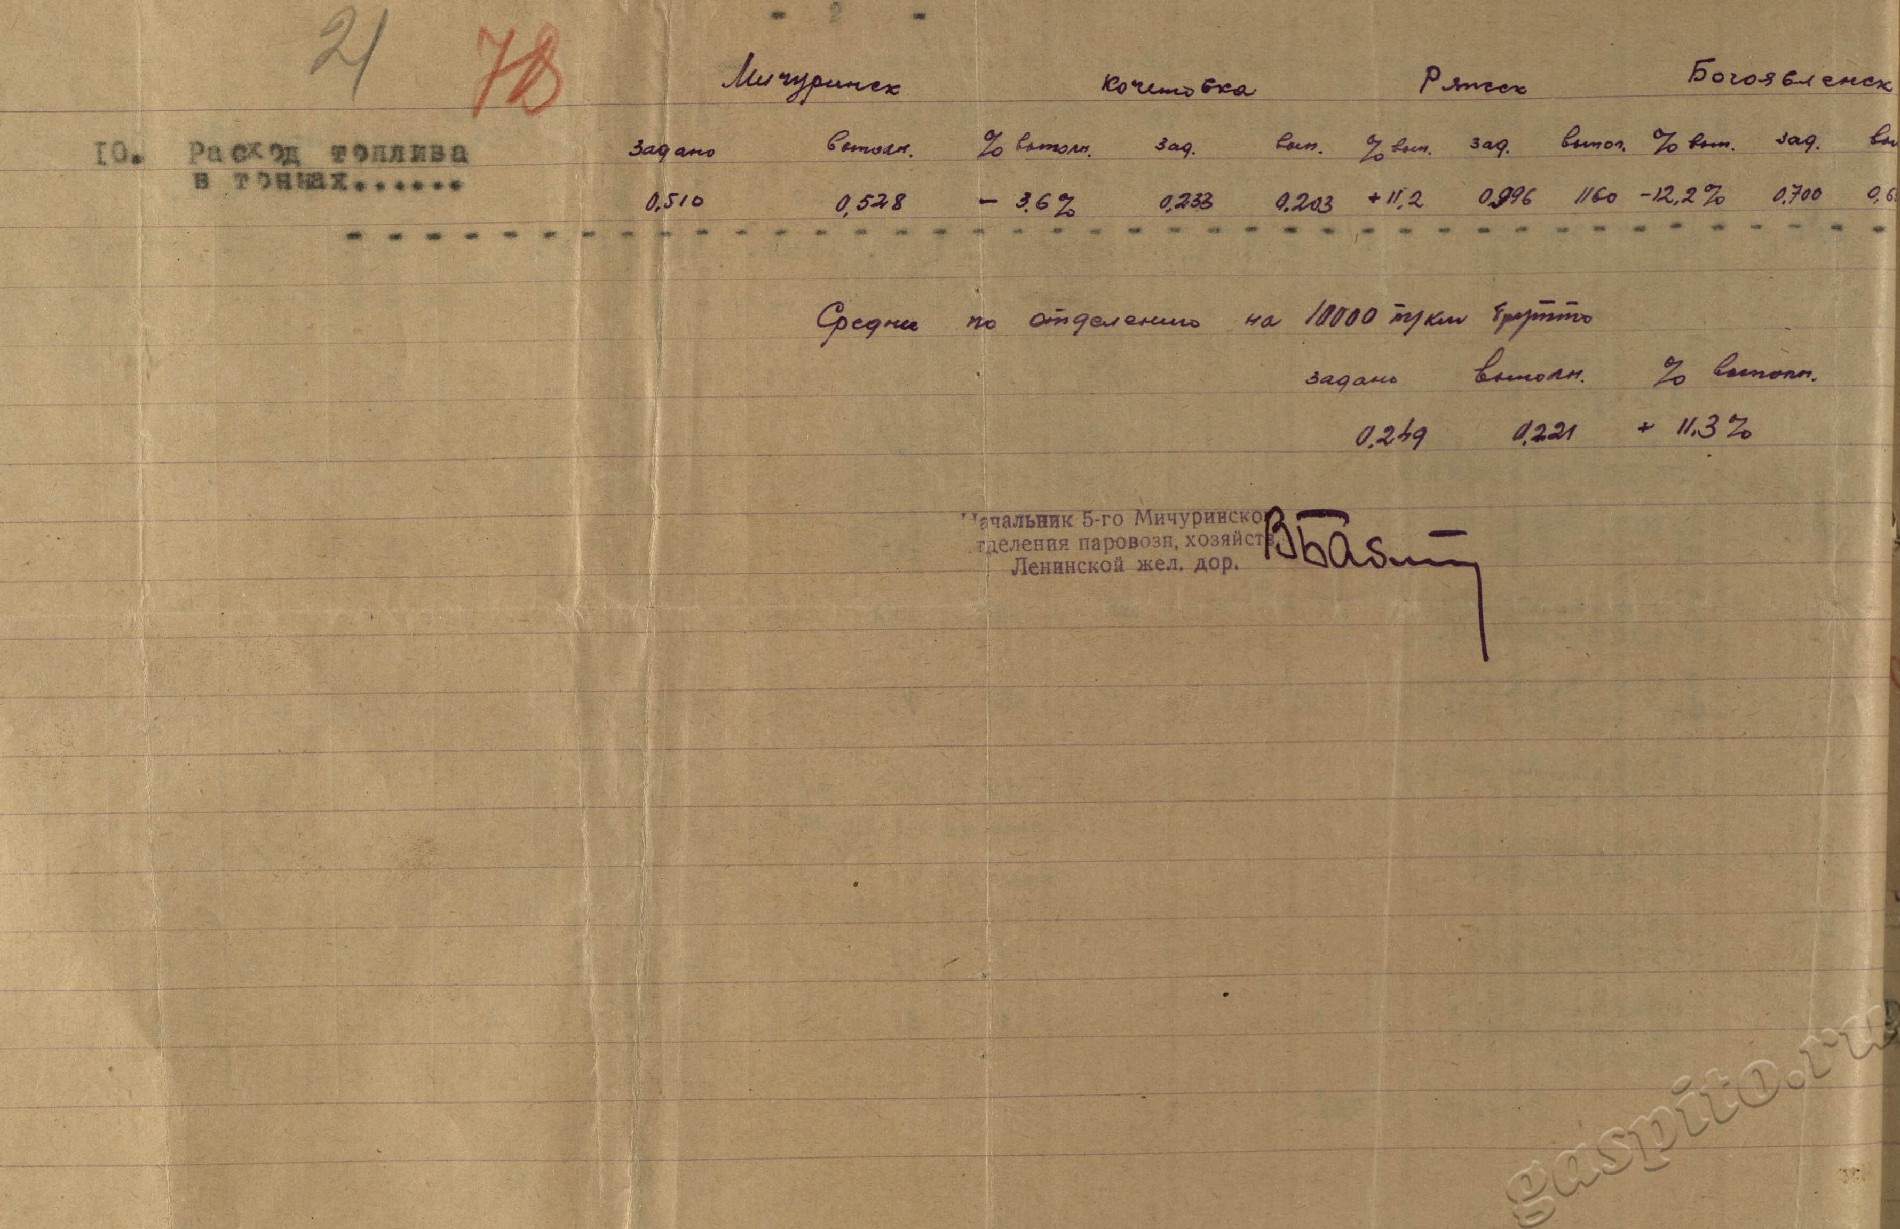 - 2 -
21 78
Мичуринск Кочетовка Ряжск Богоявленск
10. Расход топлива задано выполн. % выполн. зад. вып. % вып. зад. выпол. % вып. зад. вы
в тоннах.......
0,510 0,528 - 3,6% 0,233 0,203 +11,2 0,996 1160 -12,2% 0,700 0,6
Средне по отделению на 10000 т/км брутто
задано выполн. % выполн.
0,249 0,221 + 11,3%
Начальник 5-го Мичуринског
тделения паровозн, хозяйств
Ленинской жел. дор.
gaspito.ru